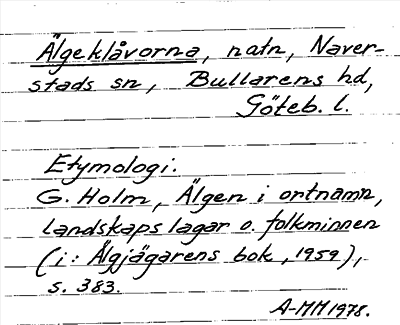 Älgeklåvorna, natn, Naver-
stads sn, Bullarens hd,
Göteb. l.
Etymologi.
G. Holm, Älgen i ortnamn,
landskapslagar o. folkminnen
(i: Älgjägarens bok, 1959),
s. 383.
A-MM 1978.